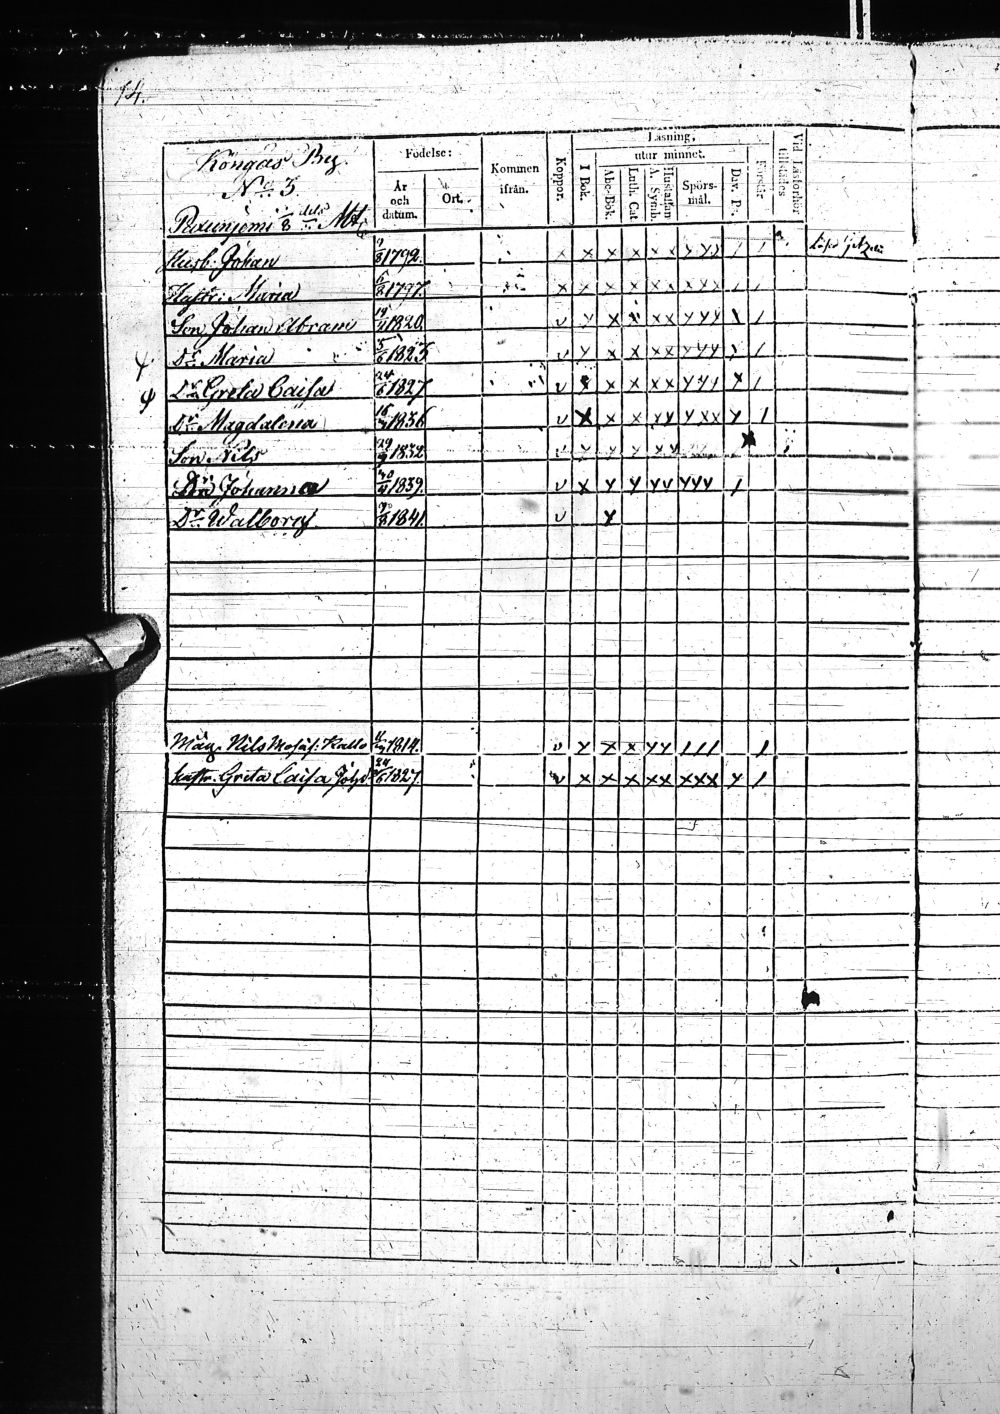 14.
Köngäs By.
No 3
1/8 dels Mt
Födelse:
År och datum.
Ort.
Kommen ifrån.
Koppor.
Läsning,
I Bok.
utur minnet.
Abc-Bok.
Luth. Cat.
Hustaflan A. Symb.
Spörs-mål.
Dav. Ps.
Förstår
Vid Läsförhör tillstädes
Husb. Johan 1792. x x x x x x x x x / /
Hustr: Maria 1797. x x x x x x x x x / /
Son Johan Abram 1820. v y x x x x y y y x /
Dr Maria 5/6 1825 v y x x x x y y y y /
Dr Greta Caisa 24/6 1827 v x x x x x y y y x /
Dr Magdalena 1836 v x x x y y y x x y /
Son Nils 1832 v y y y x x
Johanna 1839. v x y y y y y y y /
Dr Walborg 1841. v y
Måg. Nils Kallo 1814. v y x x y y / / / /
hustr. Greta Caisa 24/6 1827. v x x x x x x x x y /